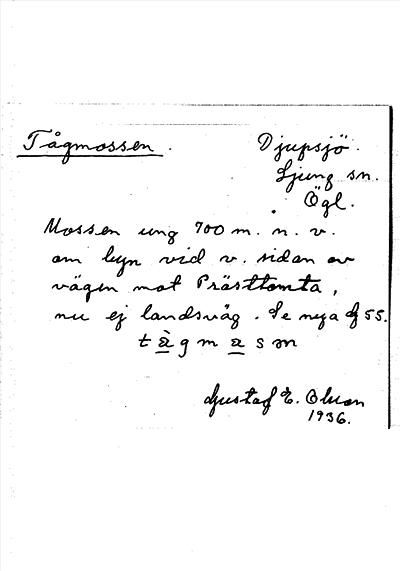 Tågmossen.
Djupsjö.
Ljung sn.
Ögl.
Mossen ung 700 m. n. v.
om byn vid v. sidan av
vägen mot Prästtomta,
nu ej landsväg. Se nya 55.
t à g m a s m
Gustaf E. Olson
1936.